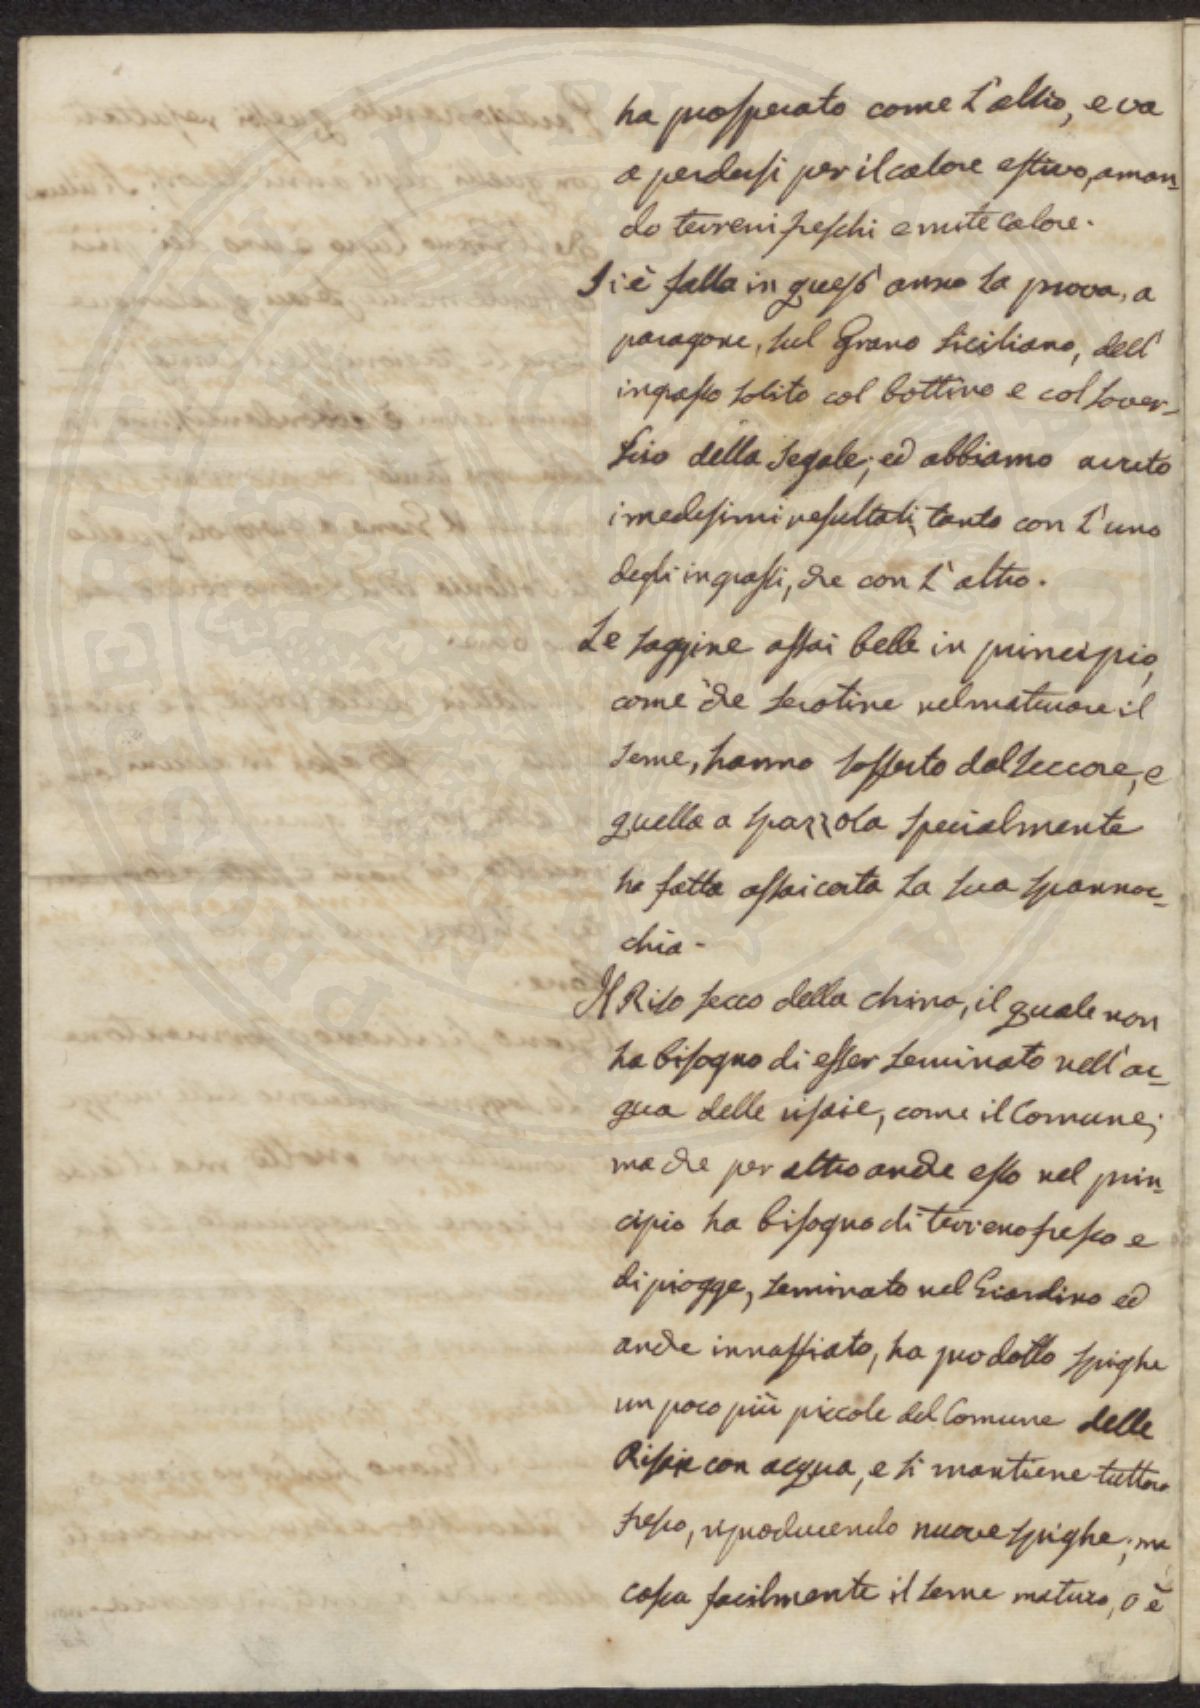 ha prosperato come l'altro, e va
a perdersi per il calore estivo, aman-
do terreni freschi e mite calore.
Si è fatta in quest'anno la prova, a
paragone, sul Grano Siciliano, dell'
ingrasso solito col bottino e col sover-
scio della segale; ed abbiamo avuto
i medesimi resultati, tanto con l'uno
degli ingrassi, che con l'altro.
Le saggine assai belle in principio,
come che serotine nel maturare il
seme, hanno sofferto dal seccore, e
quella a spazzola specialmente
ha fatta assai corta la sua spannoc-
chia.
Il Riso secco della China, il quale non
ha bisogno di esser seminato nell'ac-
qua delle risaie, come il Comune;
ma che per altro anche esso nel prin-
cipio ha bisogno di terreno fresco e
di piogge, seminato nel Giardino ed
anche innaffiato, ha prodotto spighe
un poco più piccole del Comune delle
Risaie con acqua, e si mantiene tuttora
fresco, riproducendo nuove spighe; ma
casca facilmente il seme maturo, o è